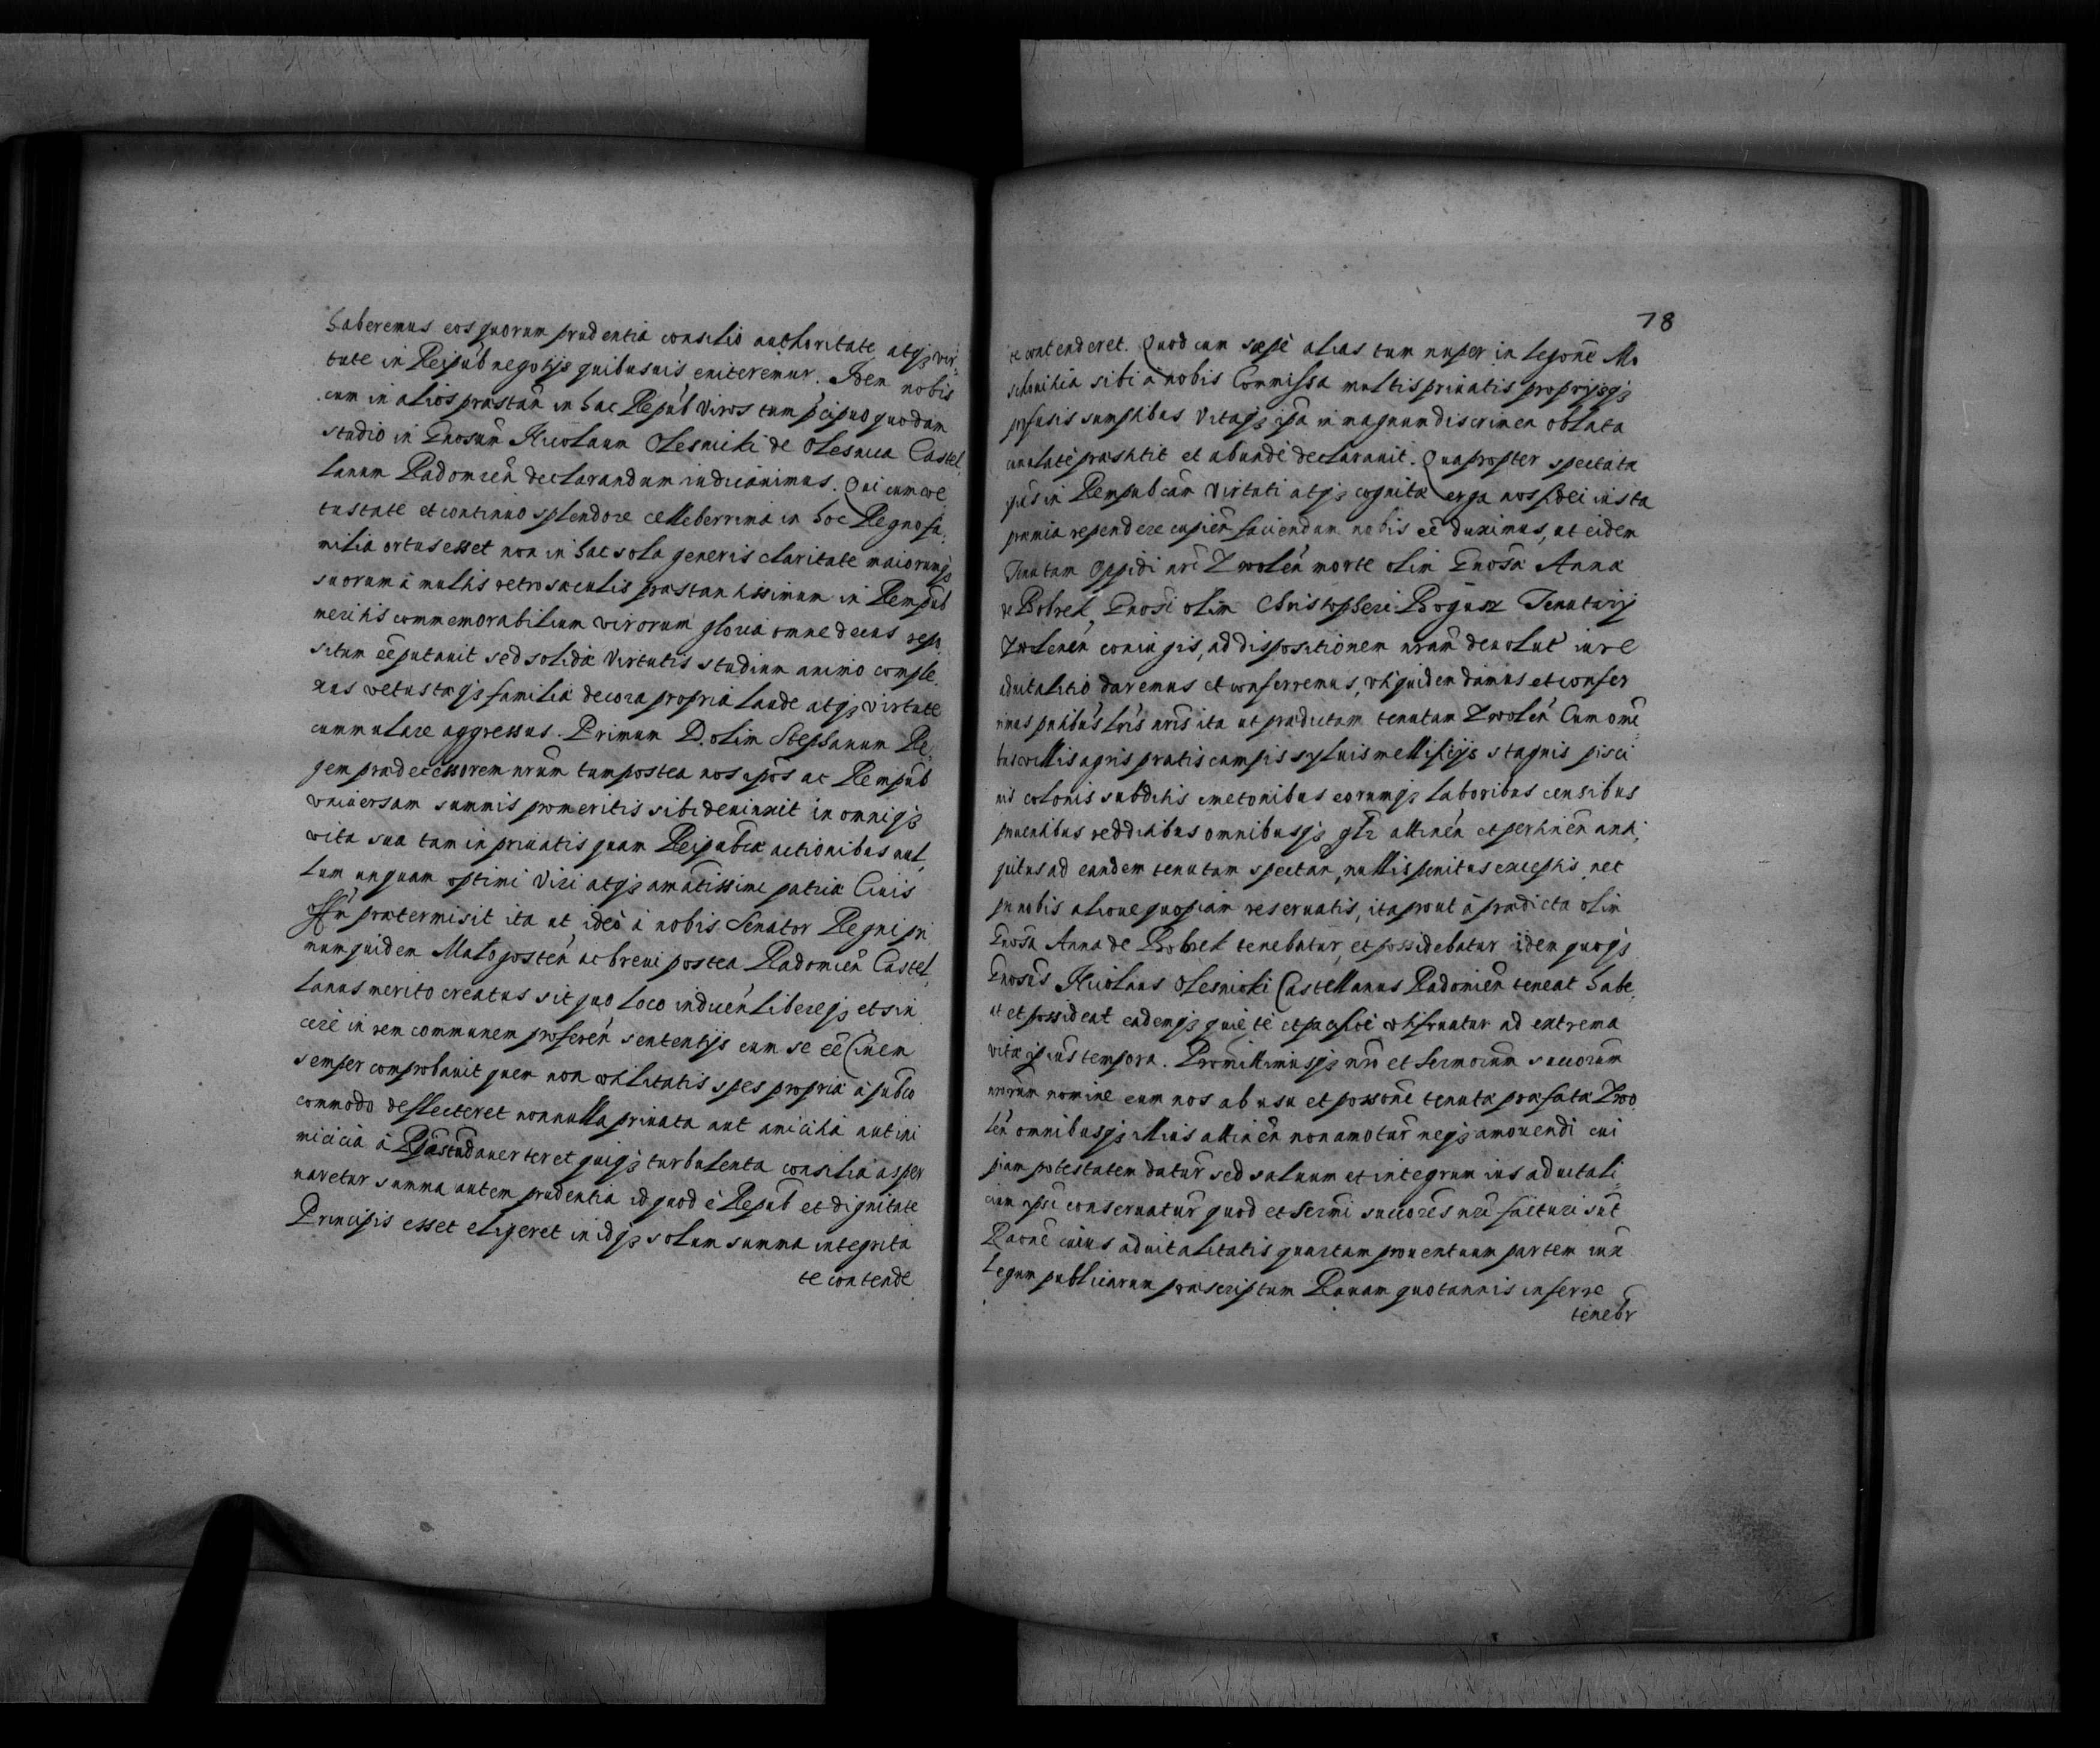 haberemus eos quorum prudentia consilio authoritate atq3 vir,
tute in Reipub negotys quibusuis eniteremur. Idem nobis
cum in alios præstan̄ in hac Repub Viros tum p̄cipuo quodam
studio in Gnosum Nicolaum Olesnicki de Olesnica Castel,
lanum Radomien̄ declarandum indicauimus. Qui cum ve
tustate et continuo splendore celleberrima in hoc Regno fa,
milia ortus esset non in hac sola generis claritate maiorumq3
suorum à multis retro sæculis præstantissimum in Rempub
meritis commemorabilium virorum gloria omne decus repo,
situm eē putauit sed solidæ Virtutis studium animo comple,
xus vetustaq3 familiæ decora propria laude atq3 virtute
cummulare aggressus. Primum D. olim Stephanum Re,
gem prædecessorem nrūm tum postea nos ipōs ac Rempub
vniuersam summis promeritis sibi deuinxit in omniq3
vita sua tam in priuatis quam Reipubcæ actionibus nul,
lum unquam optimi Viri atq3 amātissimi patriæ Ciuis
offn̄ prætermisit ita ut ideò à nobis Senator Regni pri
mum quidem Malogosten̄ ac breui postea Radomien̄ Castel,
lanus merito creatus sit quo loco in dicen̄ libereq3 et sin
cerè in rem communem proferen̄ sententys eum se eē Ciuem
semper comprobauit quem non vtilitatis spes propriæ à pubco
commodo deflecteret non nulla priuata aut amicitia aut ini
micicia à auerteret quiq3 turbulenta consilia asper
naretur summa autem prudentia id quod è Repub et dignitate
Principis esset eligeret in idq3 solum summa integrita
te contende
78
te contenderet. Quod cum sæpè alias tum nuper in legonē Mo
schouitica sibi à nobis Commissa multis priuatis proprysq3
pfusis sumptibus Vitaq3 ip̄a in magnum discrimen oblata
cumulatè præstitit et abundè declarauit. Quapropter spectatæ
in Rempubcam Virtuti atq3 cognitæ erga nos fidei iusta
præmia rependere cupien̄ faciendum nobis eē duximus, ut eidem
Tenutam Oppidi nrī Zwolen̄ morte olim Gnosæ Annæ
de Bobrek, Gnosi olim Christopheri Bogusz Tenutary
Zwolenen̄ coniugis, ad dispositionem nrām deuolut̄ iure
aduitalitio daremus et conferremus, vti quidem damus et confer
rimus pntibus lrīs nrīs ita ut prædictam tenutam Zwolen̄ Cum omī
bus villis agris pratis campis syluis mellificys stagnis pisci
nis colonis subditis cmetonibus eorumq3 laboribus censibus
puentibus redditibus omnibusq3 gtr attinen̄ et pertinen̄ anti,
quitus ad eandem tenutam spectan̄, nullis penitus exceptis, nec
p nobis aliouè quopiam reseruatis, ita prout à prædicta olim
Gnosa Anna de Bobrek tenebatur, et possidebatur idem quoq3
Gnosus Nicolaus Olesnicki Castellanus Radomien̄ teneat habe,
at et possideat eademq3 quiete et pacificè vtifruatur ad extrema
vitæ ipius tempora. Promittimusq3 nrō et Sermorum succorum
nrorum nomine eum nos ab usu et possonē tenutæ præfatæ Zwo
len̄ omnibusq3 illius attinen̄ non amotur̄ neq3 amouendi cui
piam potestatem datur̄ sed saluum et integrum ius aduitali,
cium ipsi conseruatur̄ quod et Sermi succores nrī facturi sūt
Raonē cuius aduitalitatis quartam prouentuum partem iux
Legum publicarum præscriptum Rauam quotannis inferre
tenebr